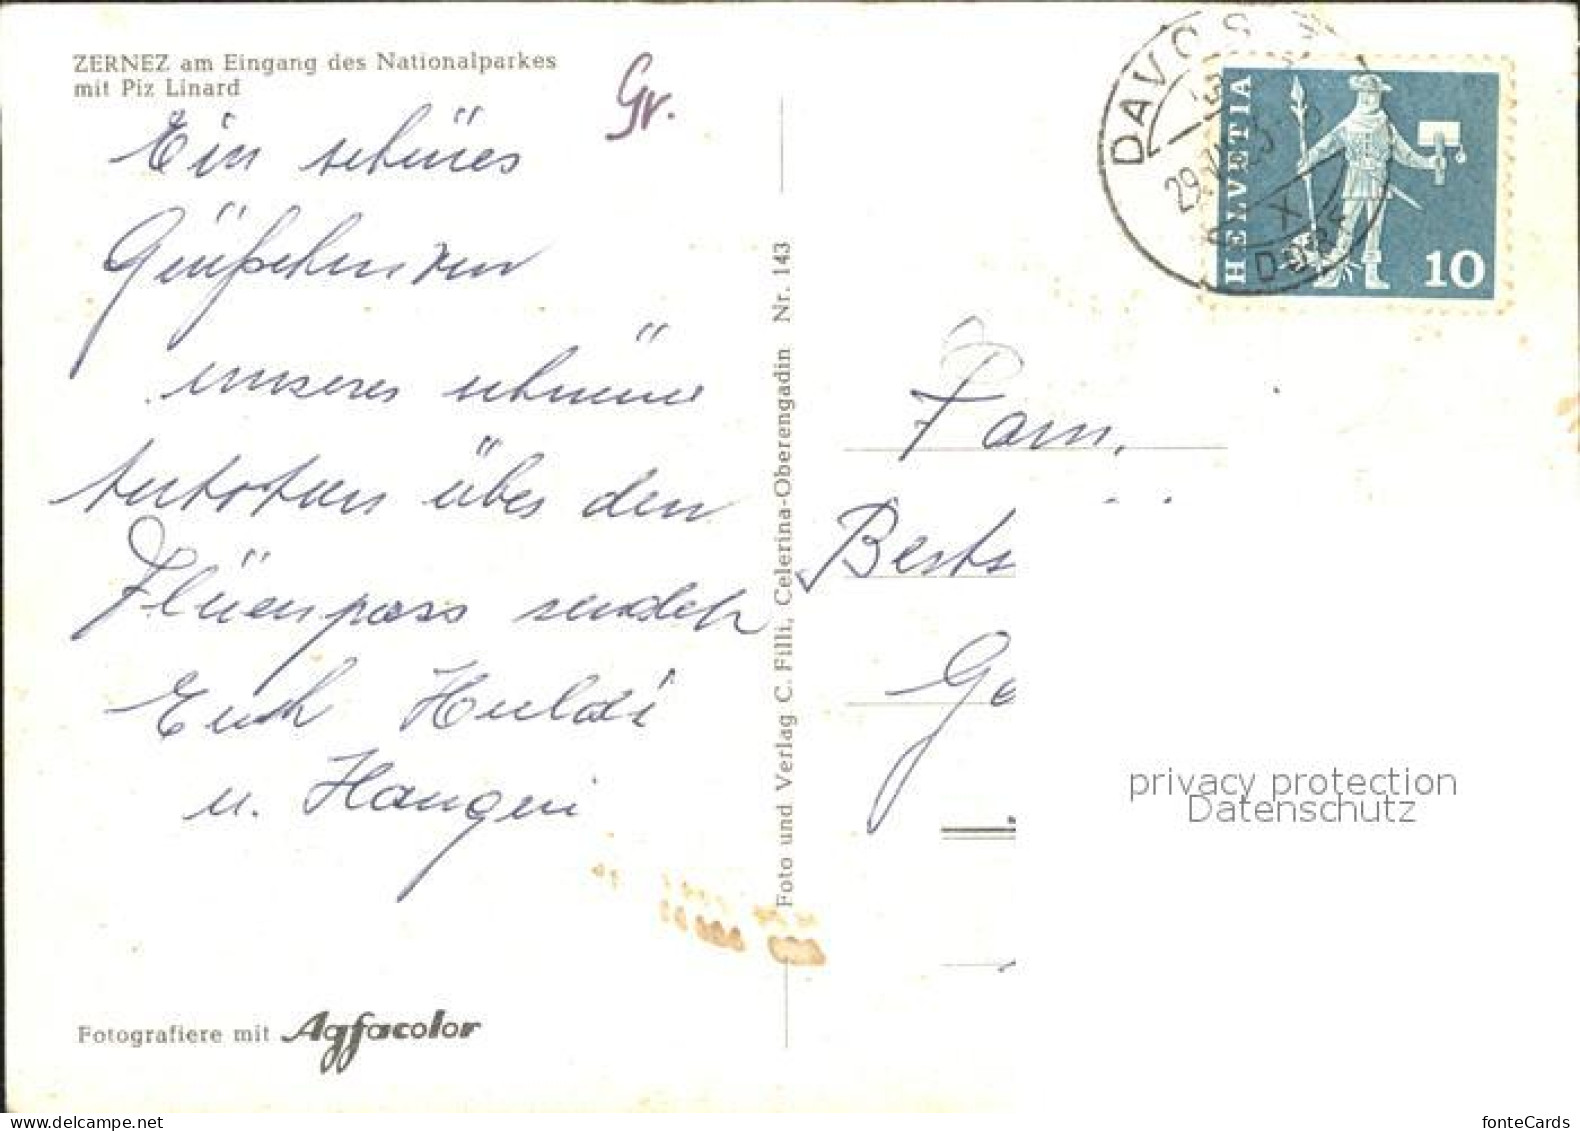 ZERNEZ am Eingang des Nationalparkes
mit Piz Linard
Gr.
Ein schönes
Grüßchen von
unseres schöne
Autotour über den
Flüenpass sendet
Euch Huldi
u. Hansueri
Fotografiere mit Agfacolor
Foto und Verlag C. Filli, Celerina-Oberengadin Nr. 143
DAVOS
29.
X
DORF
HELVETIA
10
Fam.
Bests
Ge
privacy protection
Datenschutz
fonteCards
delcampe.net